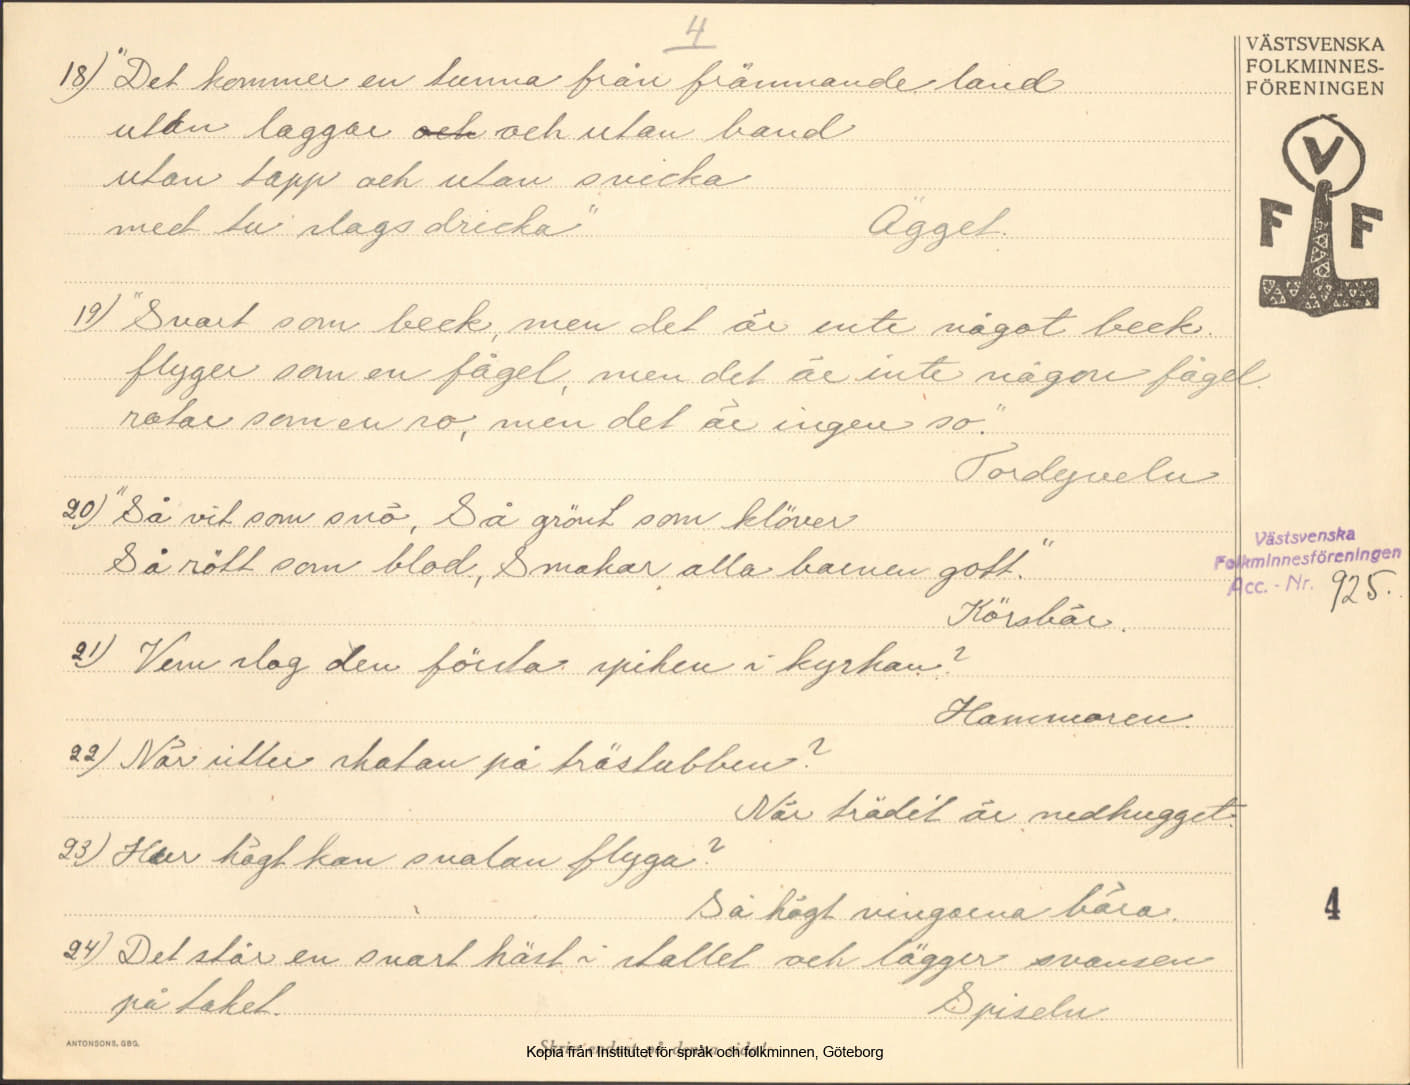 4
VÄSTSVENSKA
FOLKMINNES-
FÖRENINGEN
V
F F
18) "Det kommer en tunna från främmande land
utan laggar och och utan band
utan tapp och utan svicka
med tu slags dricka" Ägget.
19) "Svart som beck, men det är inte något beck.
flyger som en fågel, men det är inte någon fågel.
rotar som en so, men det är ingen so."
Tordyveln
20) "Så vit som snö, Så grönt som klöver
Så rött som blod, Smakar alla barnen gott."
Körsbär.
Västsvenska
Folkminnesföreningen
Acc. - Nr. 925.
21) Vem slog den första spiken i kyrkan?
Hammaren.
22) När sitter skatan på trästubben?
När trädet är nedhugget.
23) Hur högt kan svalan flyga?
Så högt vingarna bära.
4
24) Det står en svart häst i stallet och lägger svansen
på taket. Spiseln
ANTONSONS, GBG.
Skriv endast på denna sida!
Kopia från Institutet för språk och folkminnen, Göteborg